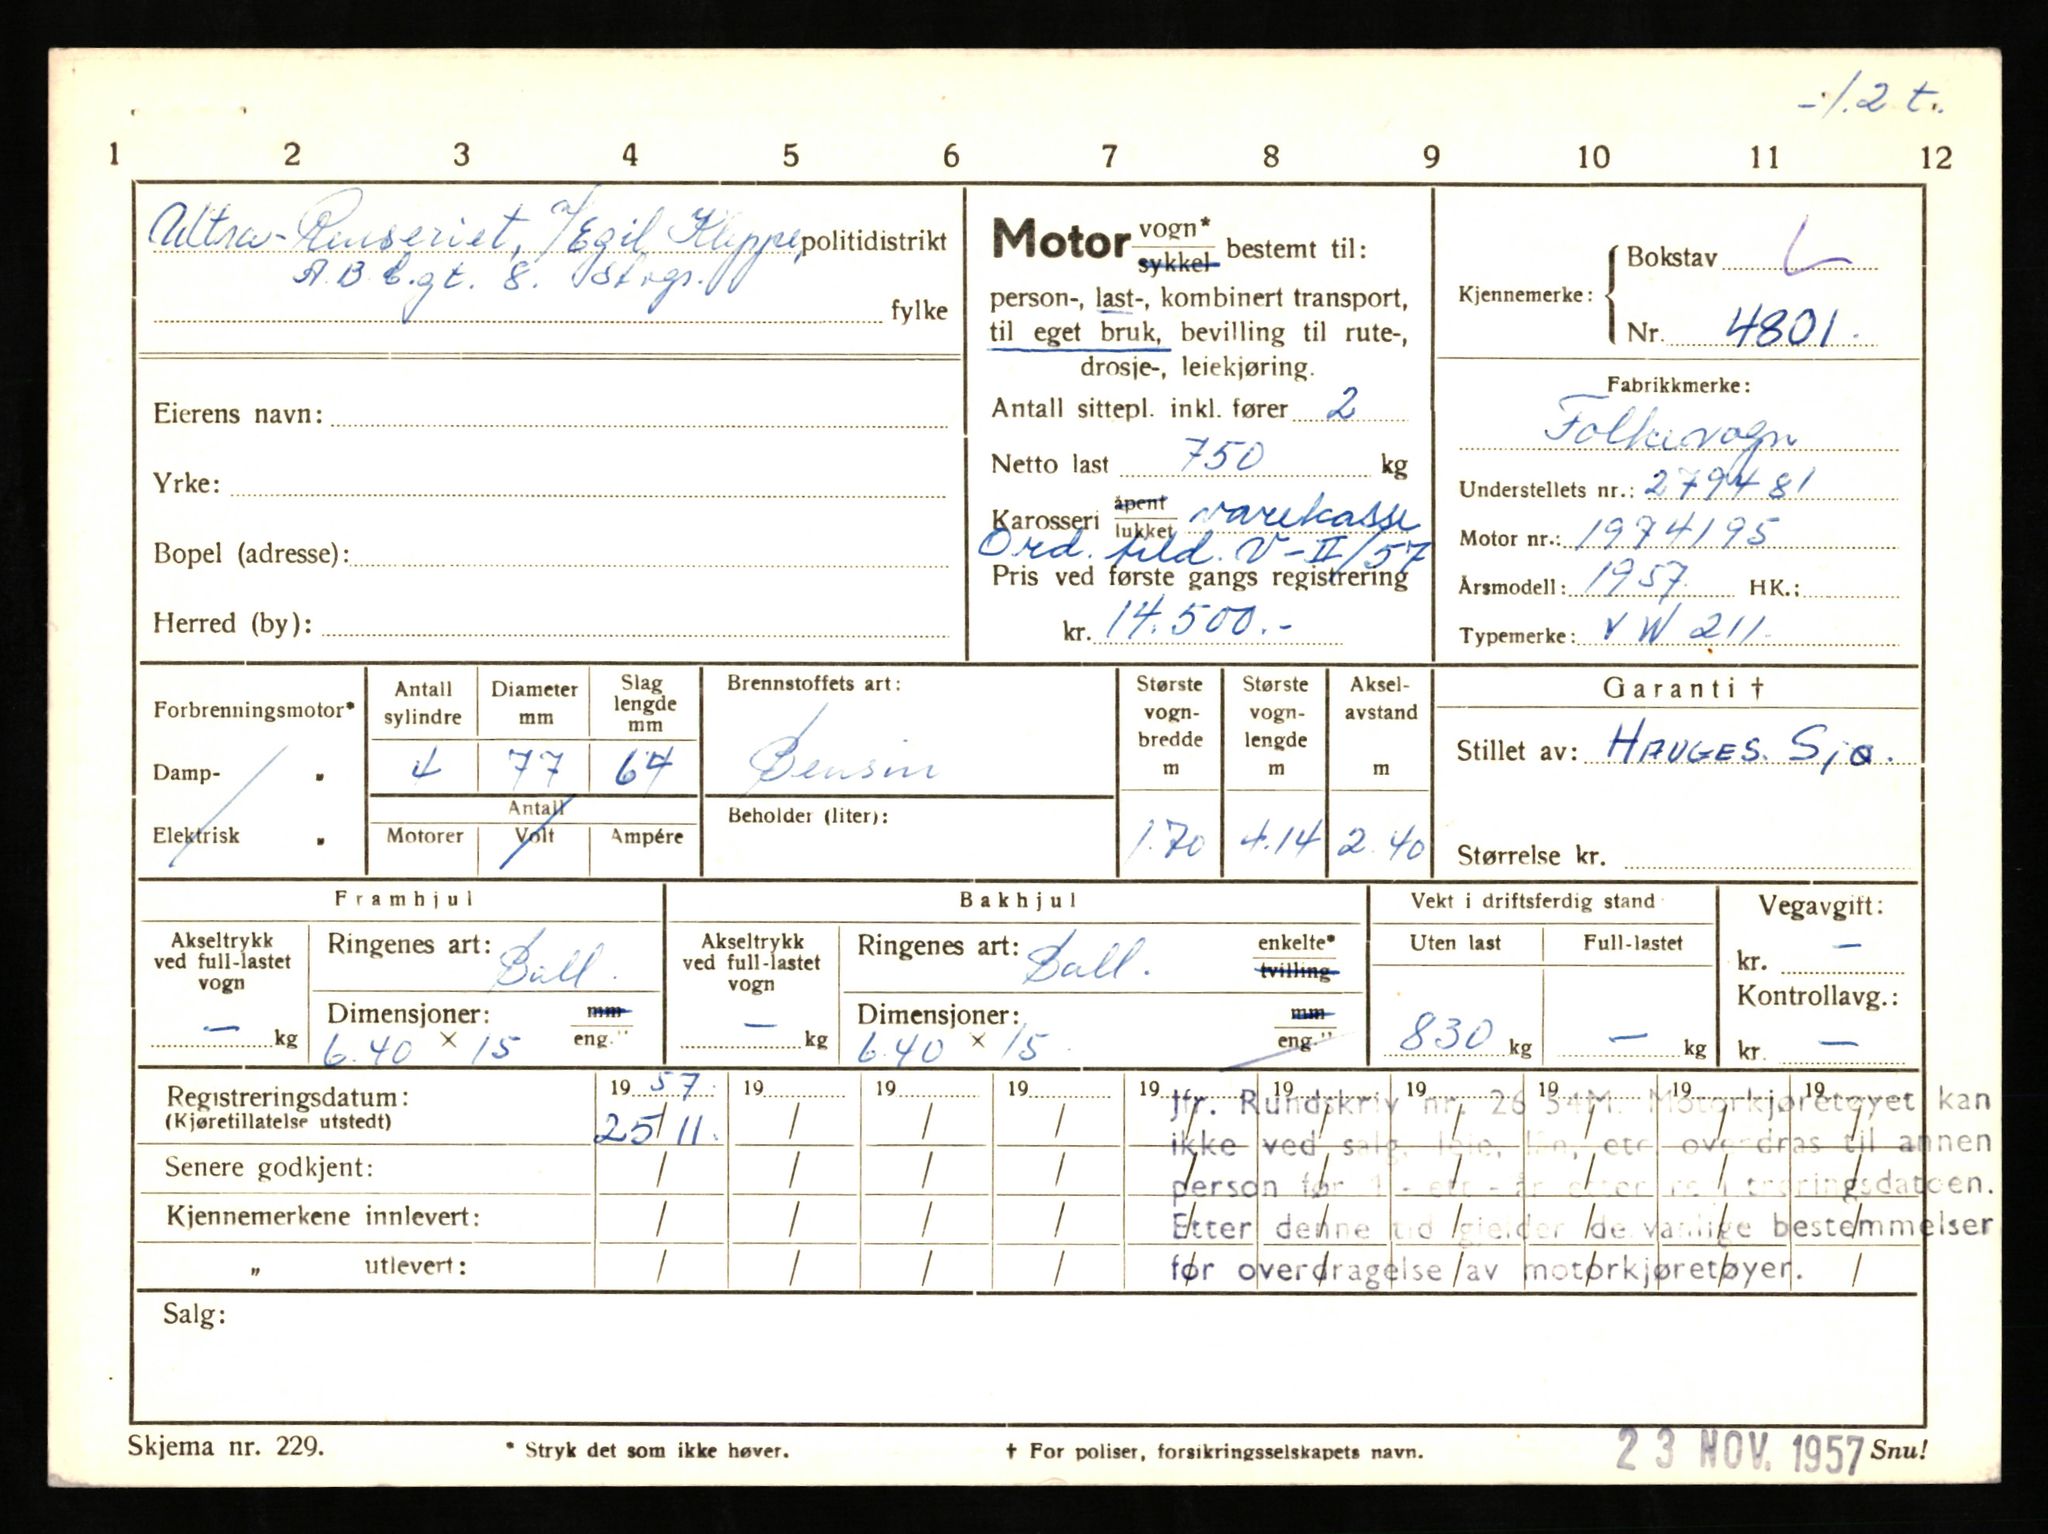 -/.2 t.
1 2 3 4 5 6 7 8 9 10 11 12
Ultra-Renseriet, v/Egil Kleppe, politidistrikt
A.B.C.gt. 8. Stvgr.
fylke
Eierens navn:
Yrke:
Bopel (adresse):
Herred (by):
Motor vogn* sykkel bestemt til:
person-, last-, kombinert transport,
til eget bruk, bevilling til rute-,
drosje-, leiekjøring.
Antall sittepl. inkl. fører 2
Netto last 750 kg
Karosseri åpent lukket varekasse
Ord. tild. V-II/57
Pris ved første gangs registrering
kr. 14.500.-
Kjennemerke: Bokstav L
Nr. 4801.
Fabrikkmerke:
Folkevogn
Understellets nr.: 279481
Motor nr.: 1974195
Årsmodell: 1957. HK.:
Typemerke: VW 211.
Forbrenningsmotor*
Damp- "
Elektrisk "
Antall sylindre
4
Diameter mm
77
Slag lengde mm
64
Antall
Motorer Volt Ampére
Brennstoffets art:
Bensin
Beholder (liter):
Største vogn-bredde m
1.70
Største vogn-lengde m
4.14
Aksel-avstand m
2.40
Garanti †
Stillet av: HAUGES. Sjø.
Størrelse kr.
Framhjul
Akseltrykk
ved full-lastet
vogn
— kg
Ringenes art: Ball.
Dimensjoner: mm
6.40 × 15 eng."
Bakhjul
Akseltrykk
ved full-lastet
vogn
— kg
Ringenes art: Ball. enkelte* tvilling
Dimensjoner: mm
6.40 × 15 eng."
Vekt i driftsferdig stand
Uten last Full-lastet
830 kg — kg
Vegavgift:
kr. —
Kontrollavg.:
kr. —
Registreringsdatum: 1957. 19 19 19 19 19 19 19 19 19
(Kjøretillatelse utstedt) 25/11. / / / / / / / / /
Senere godkjent: / / / / / / / / / /
Kjennemerkene innlevert: / / / / / / / / / /
" utlevert: / / / / / / / / / /
Jfr. Rundskriv nr. 26 54M. Motorkjøretøyet kan
ikke ved salg, leie, lån, etc. overdras til annen
person før 1 - ett - år etter registreringsdatoen.
Etter denne tid gjelder de vanlige bestemmelser
for overdragelse av motorkjøretøyer.
Salg:
Skjema nr. 229. * Stryk det som ikke høver. † For poliser, forsikringsselskapets navn. 23 NOV. 1957 Snu!